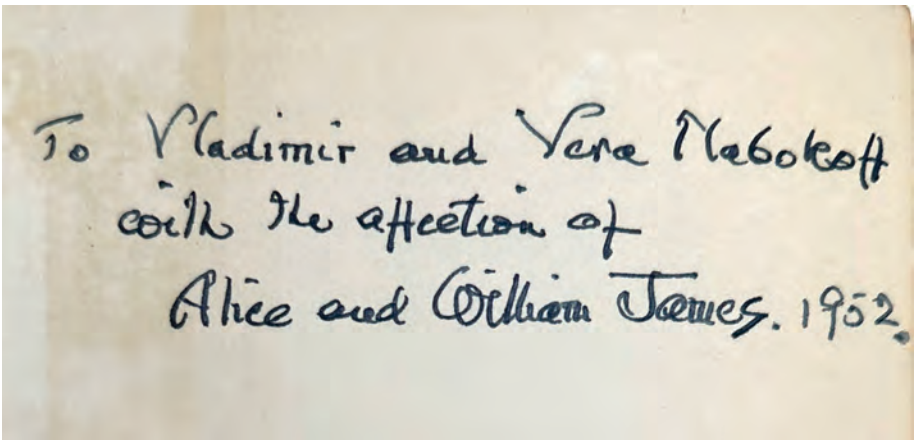 To Vladimir and Vera Nabokoff
with the affection of
Alice and William James. 1952.